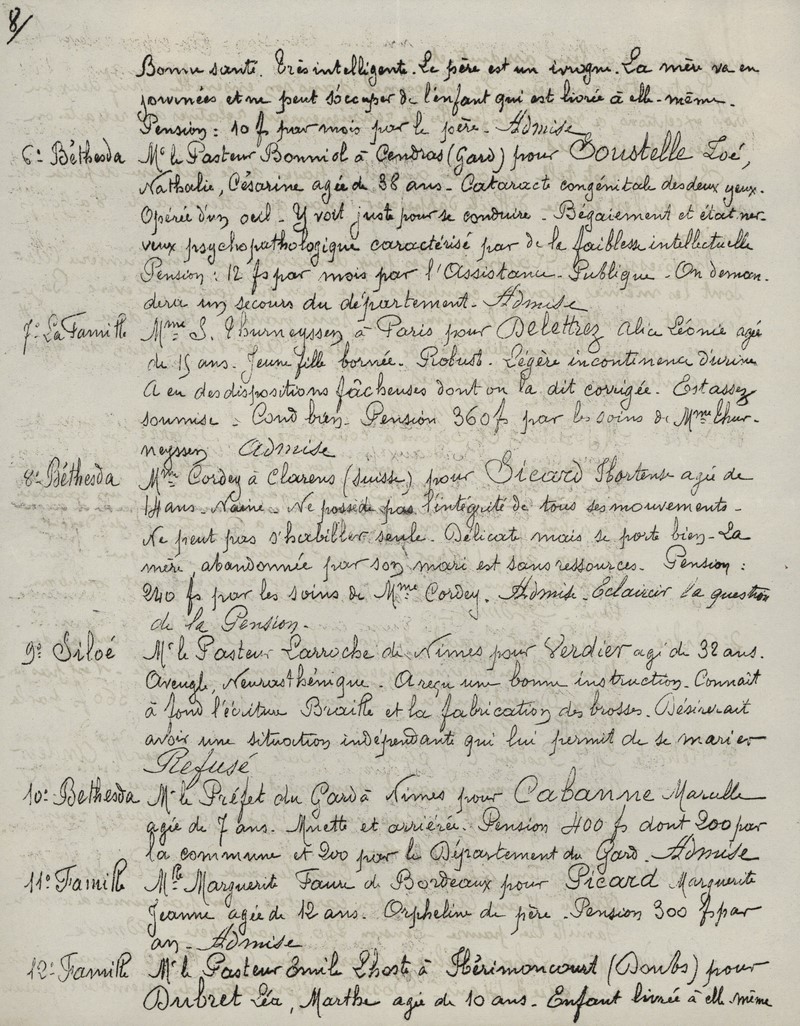 8/
Bonne santé. Très intelligente. Le père est un ivrogne. La mère va en
journées et ne peut s'occuper de l'enfant qui est livrée à elle-même.
Pension : 10 fs par mois par le père. Admise
6° Béthesda Mr le Pasteur Bonniol à Cendras (Gard) pour Soustelle Zoé,
Nathalie, Césarine agée de 38 ans. Cataracte congénitale des deux yeux.
Opérée d'un oeil. Y voit juste pour se conduire. Bégaiement et état ner-
veux psychopathologique caractérisé par de la faiblesse intellectuelle
Pension : 12 fs par mois par l'Assistance Publique. On deman-
dera un secours du département. Admise
7° La Famille Mme S. Thurneyssen à Paris pour Delettrez Alice Léonie agée
de 15 ans. Jeune fille bornée. Robuste. Légère incontinence d'urine
A eu des dispositions fâcheuses dont on la dit corrigée. Est assez
soumise. Coud bien. Pension 360 fs par les soins de Mme Thur-
neyssen Admise
8° Béthesda Mme Cordey à Clarens (Suisse) pour Sicard Hortense agée de
14 ans. Naine. Ne possède pas l'intégrité de tous ses mouvements.
Ne peut pas s'habiller seule. Délicate mais se porte bien. La
mère, abandonnée par son mari est sans ressources. Pension :
240 fs par les soins de Mme Cordey. Admise. Eclaircir la question
de la Pension.
9° Siloé Mr le Pasteur Larroche de Nimes pour Verdier agé de 32 ans.
Aveugle, Neurasthénique. A reçu une bonne instruction. Connait
à fond l'écriture Braille et la fabrication des brosses. Désirerait
avoir une situation indépendante qui lui permit de se marier
Refusé
10° Béthesda Mr le Préfet du Gard à Nimes pour Cabanne Marcelle
agée de 7 ans. Muette et arriérée. Pension 400 fs dont 200 par
la commune et 200 par le Département du Gard. Admise
11° Famille Mlle Marguerite Faure de Bordeaux pour Picard Marguerite
Jeanne agée de 12 ans. Orpheline de père. Pension 300 fs par
an. Admise
12° Famille Mr le Pasteur Emile Lhoste à Hérimoncourt (Doubs) pour
Dubret Léa, Marthe agée de 10 ans. Enfant livrée à elle même